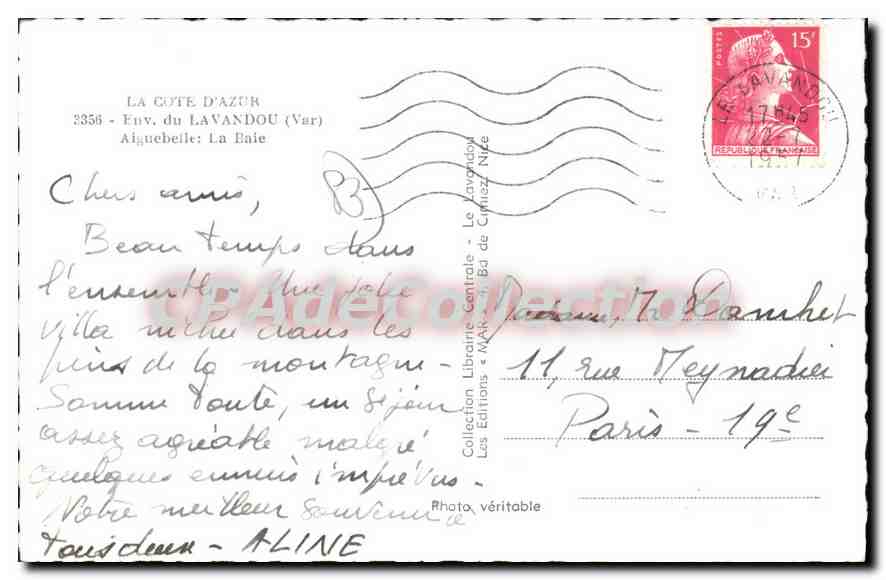 LA COTE D'AZUR
2356 - Env. du LAVANDOU (Var)
Aiguebelle: La Baie
Chers amis,
83
Beau temps dans
l'ensemble. Une jolie
villa nichée dans les
pins de la montagne -
Somme toute, un séjour
assez agréable malgré
quelques ennuis imprévus -
Notre meilleur souvenir à
tous deux - ALINE
Collection Librairie Centrale - Le Lavandou
Les Editions « MAR », 4, Bd de Cimiez, Nice
Photo véritable
POSTES
15F
REPUBLIQUE FRANÇAISE
LE LAVANDOU
17H45
22-7
1957
VAR
Madame, Mr
11, rue Meynadier
Paris - 19e
CPADeCollection